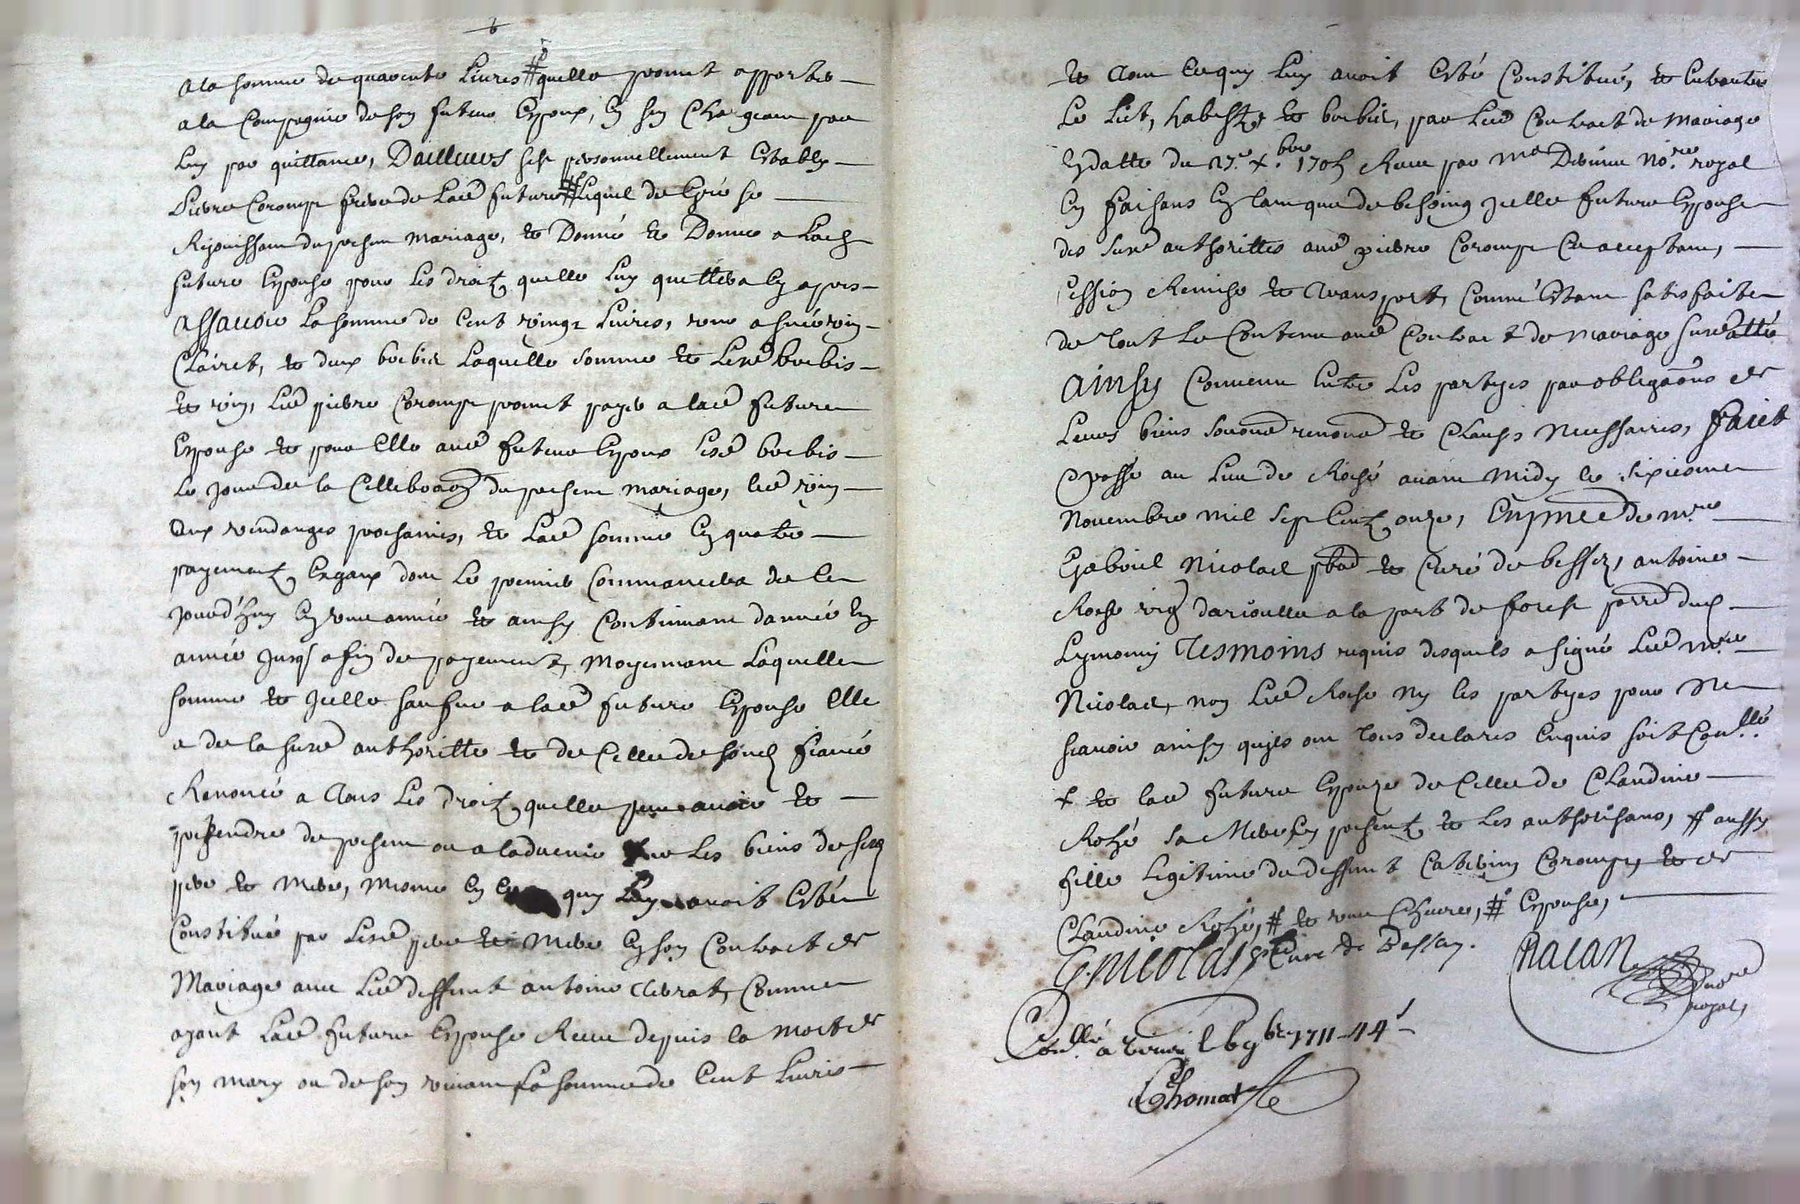 a la somme de quarente livres # quelle promet apporter
a la Compagnie de son futur Epoux, en sen Chargeant par
luy par quittance, Dailleurs sest personnellement Estably
Pierre Coromp frere de lad future # lequel de gré se
Rejouissant du present mariage, et Donné et Donne a lad
future Epouse pour les droitz quelle luy quittera cy apres
assavoir la somme de Cent vingt livres, vin
Clairet, et deux brebis laquelle somme et lesd brebis
et vin, led pierre Coromp promet payer a lad future
Epouse et pour Elle aud futur Epoux lesd brebis
le jour de la Cellebraon du present mariage, led vin
aux vendanges prochaines, et lad somme en quatre
payementz Egaux dont le premier Commancera de ce
jourd'huy en une année et ainsy Continuant dannée en
année jusq a fin de payement, Moyennant laquelle
somme et jcelle saufve a lad future Epouse Elle
a de la susd authoritte et de Celle de sond fiancé
Renoncé a tous les droitz quelle peut avoir et
pretendre de present ou a ladvenir sur les biens de sesd
pere et mere, mesme en quy luy avoit Esté
Constitué par lesd pere et mere en son Contract de
Mariage avec led deffunt antoine Comme
ayant lad future Epouse Receu depuis la mort de
son mary ou de son vivant la somme de Cent livres
et tout Ce quy luy avoit Esté Constitué, et
le lict, habestz et brebis, par led Contract de Mariage
en datte du 27e xbre 1705 Receu par Me no.re royal
En faisant En tant que de besoing jcelle future Epouse
des susd authorittes aud pierre Coromp Ce acceptant,
Cession Remise et transport, Comme Estant satisfaite
de tout le Contenu aud Contract de Mariage susdatté
ainsy Convenu Entre les partyes par obligaons de
leurs biens renond et Clauses necessaires, faict
et passé au lieu de Roché avant midy le sixiesme
Novembre mil sept Centz onze, En pnce de m.re
Gabriel Nicolas pbre et Curé de bessez, antoine
Roche a la part de forest parr dud
tesmoins requis desquels a signé led m.re
Nicolas, non led Roche ny les partyes pour ne
scavoir ainsy quiles ont tous declarés Enquis soit Con.llé
+ et lad future Epouze de Celle de Claudine
Roché sa Mere Cy presentz et les authorisant, # aussy
fille legitime de deffunt Catherin Coromp et de
Claudine Roché, # et une Chevre, # Epouse,
G. nicolas pbre Curé de Bessay.
Chalan
no.re
royal
Con.llé a 9bre 1711
Chomat